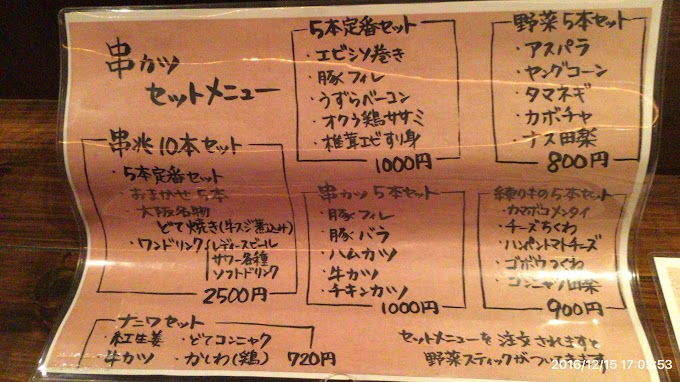 串カツ
セットメニュー
5本定番セット
・エビシソ巻き
・豚フィレ
・うずらベーコン
・オクラ鶏ササミ
・椎茸エビすり身
1000円
野菜5本セット
・アスパラ
・ヤングコーン
・タマネギ
・カボチャ
・ナス田楽
800円
串兆10本セット
・5本定番セット
・おまかせ5本
・大阪名物
どて焼き(牛スジ煮込み)
・ワンドリンク
レディースビール
サワー各種
ソフトドリンク
2500円
串カツ 5本セット
・豚フィレ
・豚バラ
・ハムカツ
・牛カツ
・チキンカツ
1000円
練りもの5本セット
・カマボコメンタイ
・チーズちくわ
・ハンペントマトチーズ
・ゴボウつくね
・コンニャク田楽
900円
ナニワセット
・紅生姜 ・どてコンニャク
・牛カツ ・かしわ(鶏) 720円
セットメニューを注文されますと
野菜スティックがつきます
2016/12/15 17:05:53